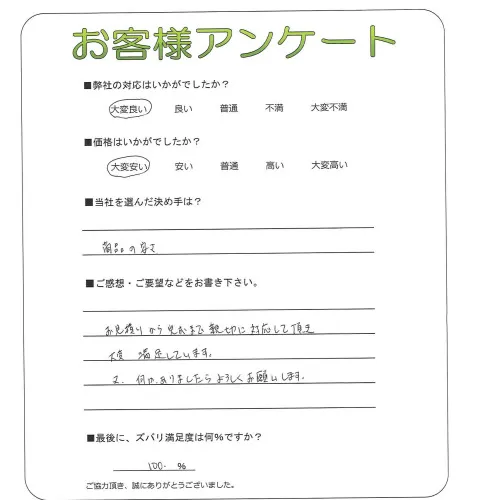 お客様アンケート
■弊社の対応はいかがでしたか？
大変良い 良い 普通 不満 大変不満
■価格はいかがでしたか？
大変安い 安い 普通 高い 大変高い
■当社を選んだ決め手は？
商品の安さ
■ご感想・ご要望などをお書き下さい。
お見積りから完成まで親切に対応して頂き
大変 満足しています。
又、何かありましたらよろしくお願いします。
■最後に、ズバリ満足度は何%ですか？
100. %
ご協力頂き、誠にありがとうございました。